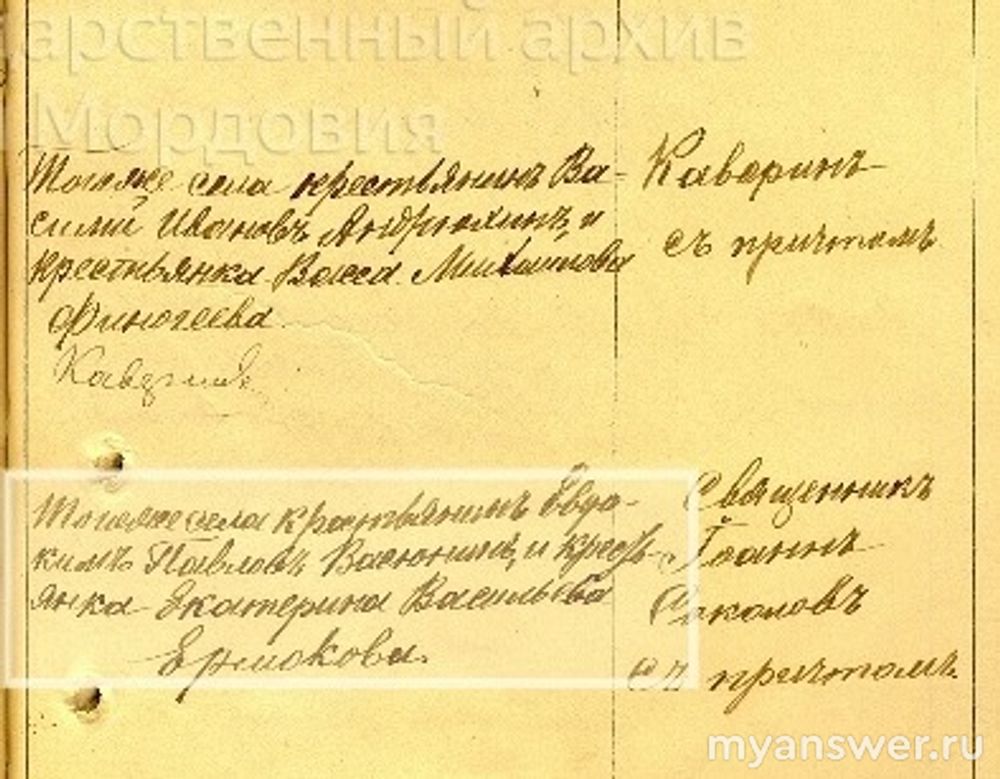 дарственный архив
Мордовия
Тогоже села крестьянинъ Ва-
силий Ивановъ Андрюхинъ, и
крестьянка Васса Михайлова
Финогеева
Каверинъ
съ причтомъ
Тогоже села крестьянинъ Евдо-
кимъ Павловъ Васюнинъ, и крест-
янка Екатерина Васильева
Ермокова.
Священникъ
Iоаннъ
Соколовъ
съ причтомъ.
myanswer.ru